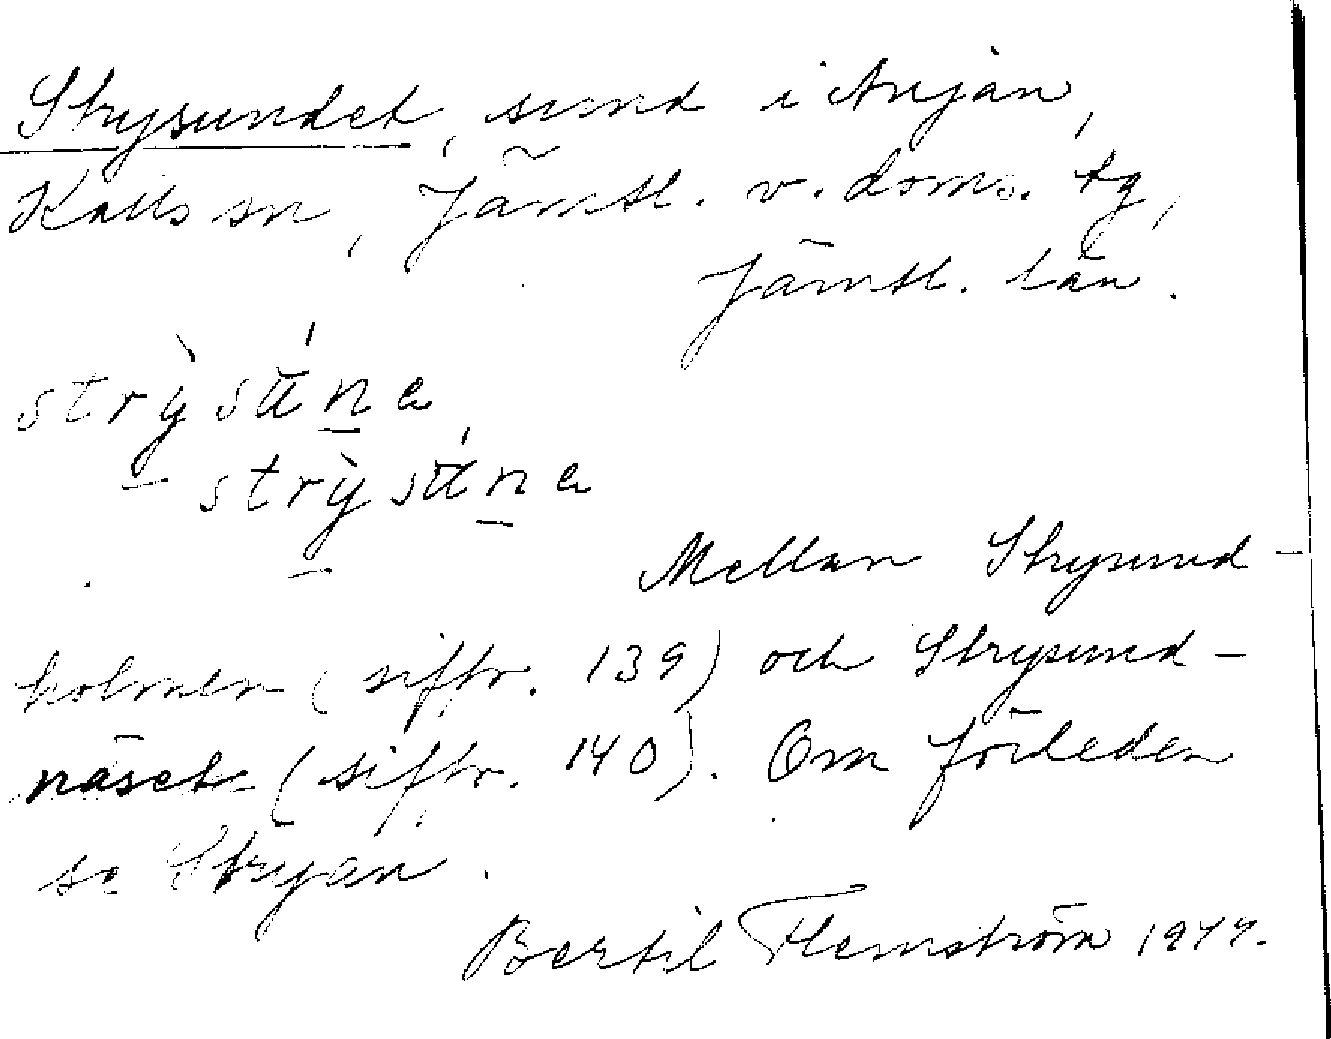 Strysundet, sund i Anjan,
Kalls sn, Jämtl. v. doms. tg,
Jämtl. län.
strỳsú̄n̲a
- strỳ̲sú̄n̲a
Mellan Strysund-
holmen (siffr. 139) och Strysund-
näset (siffr. 140). Om förleden
se Stryån.
Bertil Flemström